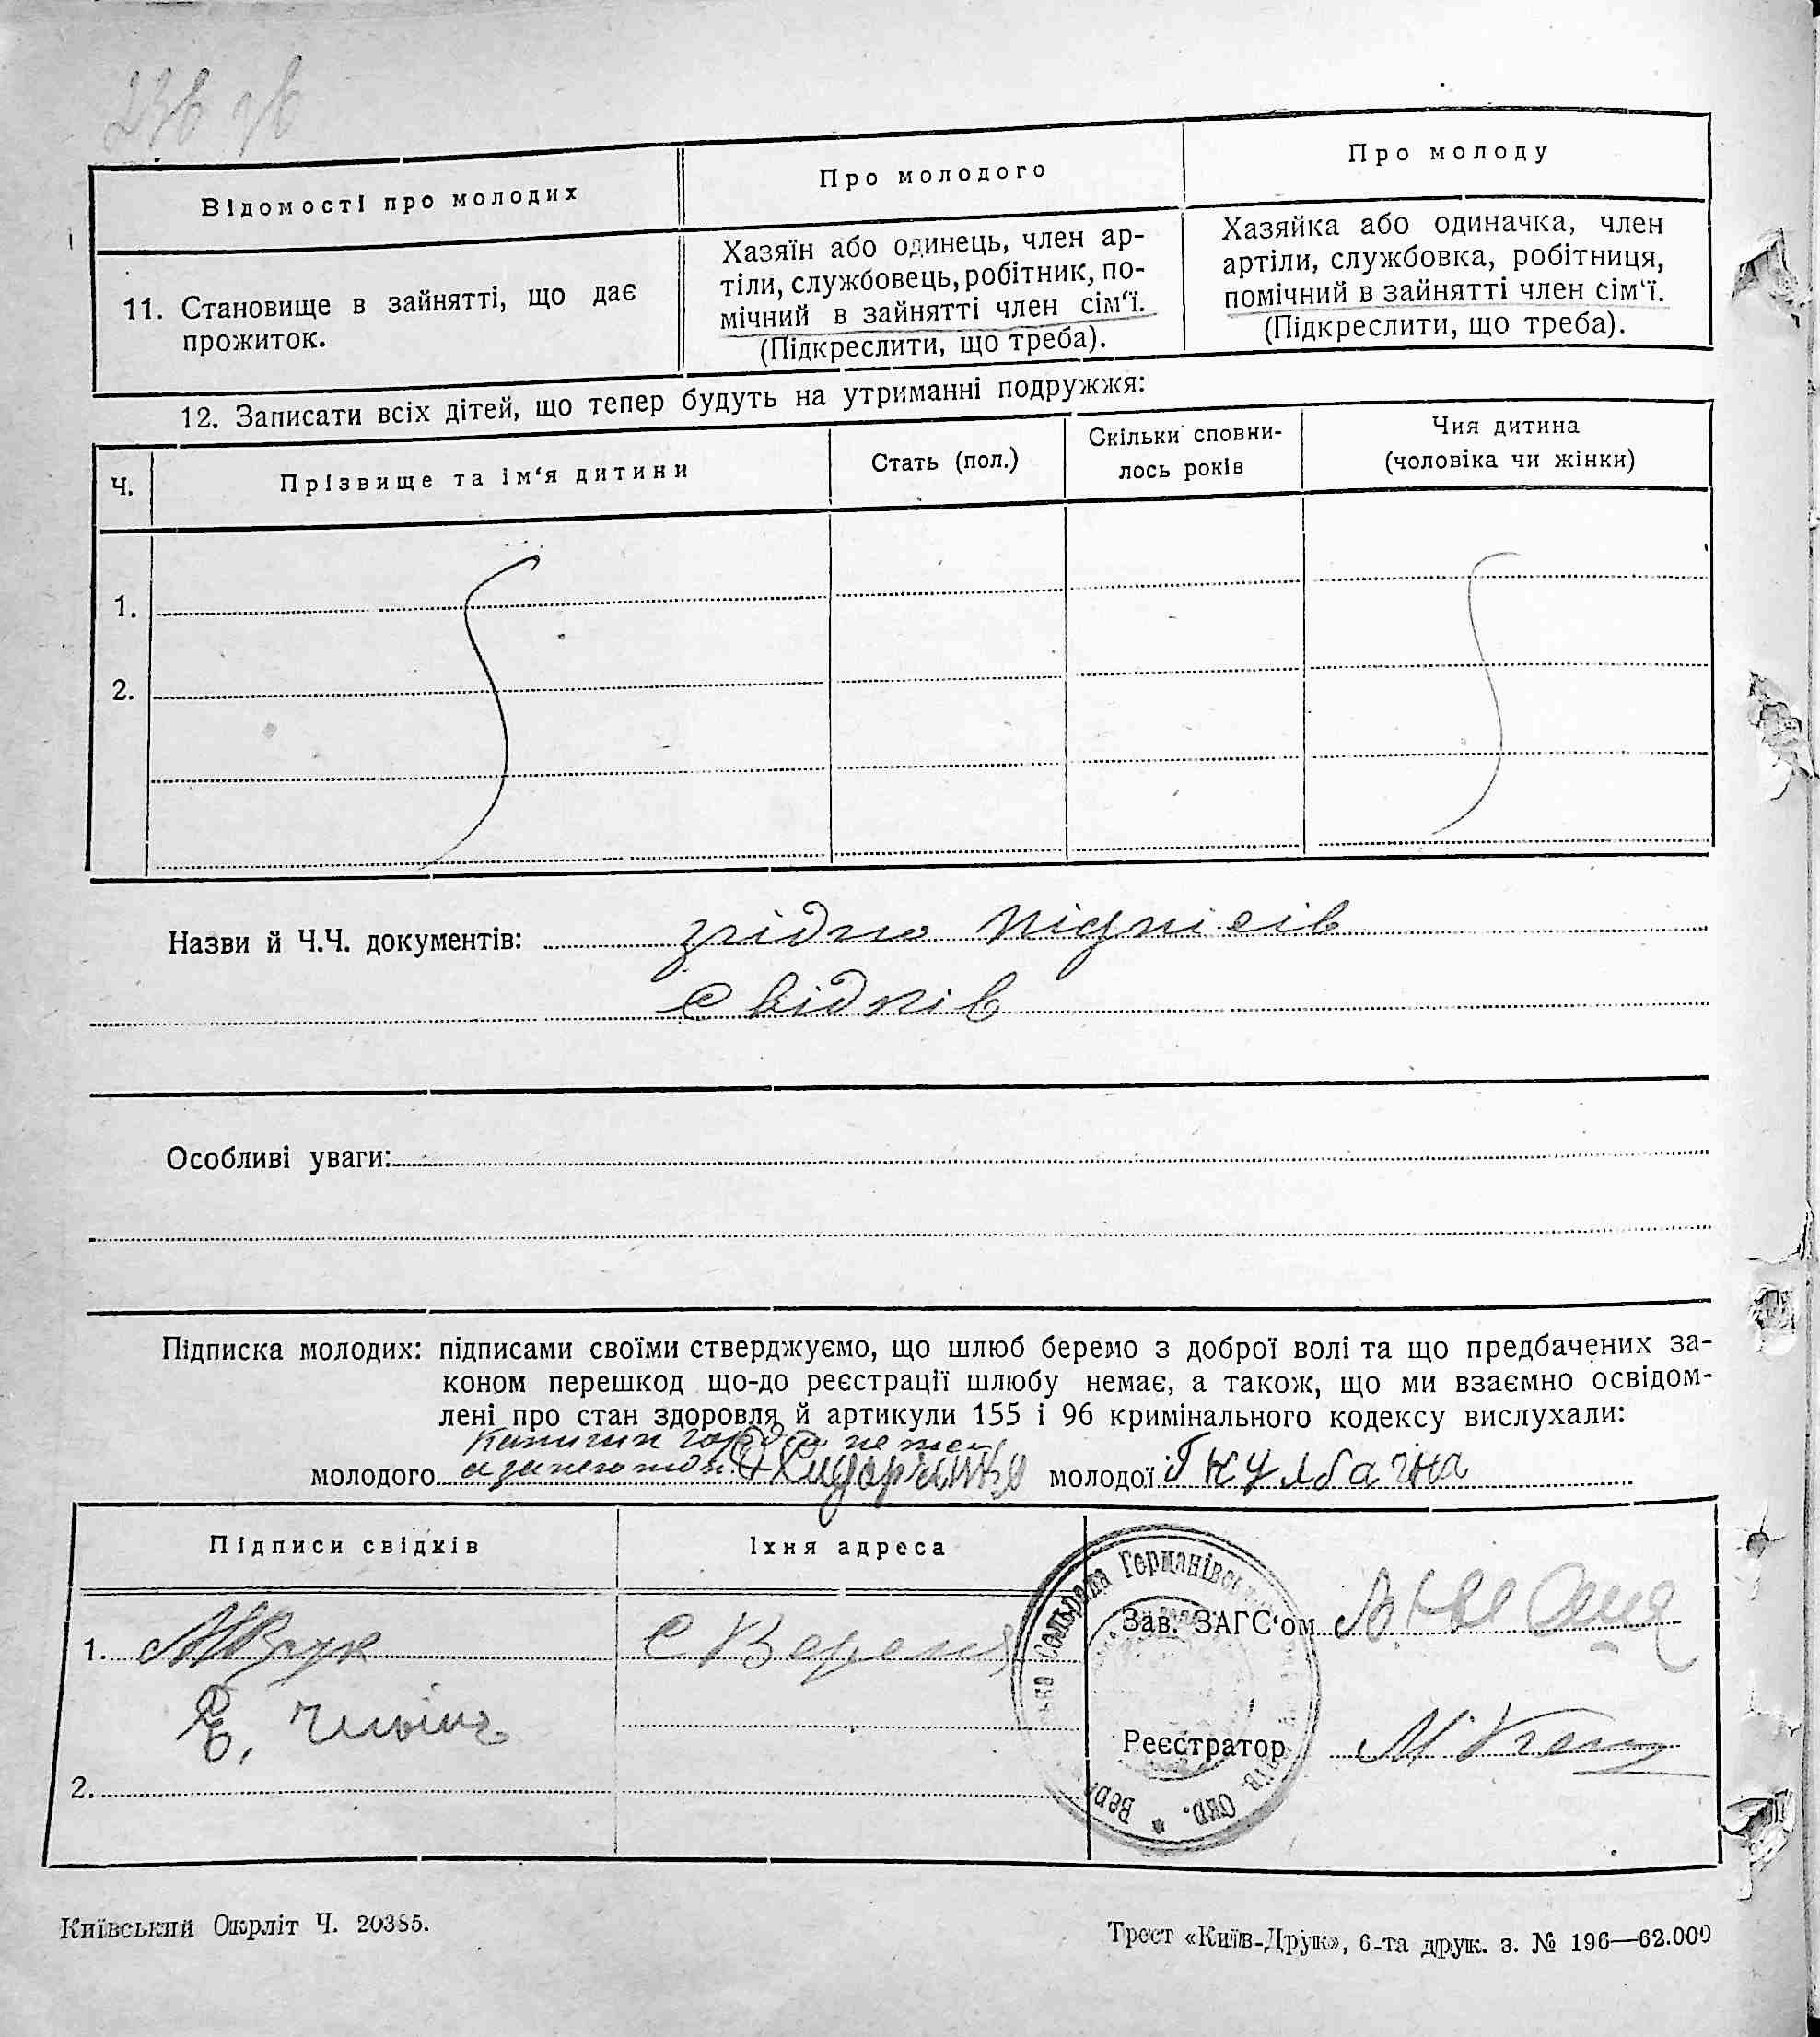 Відомості про молодих
Про молодого
Про молоду
11. Становище в зайнятті, що дає
прожиток.
Хазяїн або одинець, член ар-
тіли, службовець, робітник, по-
мічний в зайнятті член сім‘ї.
(Підкреслити, що треба).
Хазяйка або одиначка, член
артіли, службовка, робітниця,
помічний в зайнятті член сім‘ї.
(Підкреслити, що треба).
12. Записати всіх дітей, що тепер будуть на утриманні подружжя:
Ч.
Прізвище та ім‘я дитини
Стать (пол.)
Скільки сповни-
лось років
Чия дитина
(чоловіка чи жінки)
1.
2.
Назви й Ч.Ч. документів: згідно підписів
свідків
Особливі уваги:
Підписка молодих: підписами своїми стверджуємо, що шлюб беремо з доброї волі та що предбачених за-
коном перешкод що-до реєстрації шлюбу немає, а також, що ми взаємно освідом-
лені про стан здоровля й артикули 155 і 96 кримінального кодексу вислухали:
молодого
молодої
Підписи свідків
Їхня адреса
Сольрада Германівськ
Окр.
Зав. ЗАГС‘ом
1.
Реєстратор
2.
Київський Окрліт Ч. 20385.
Трест «Київ-Друк», 6-та друк. з. № 196—62.000